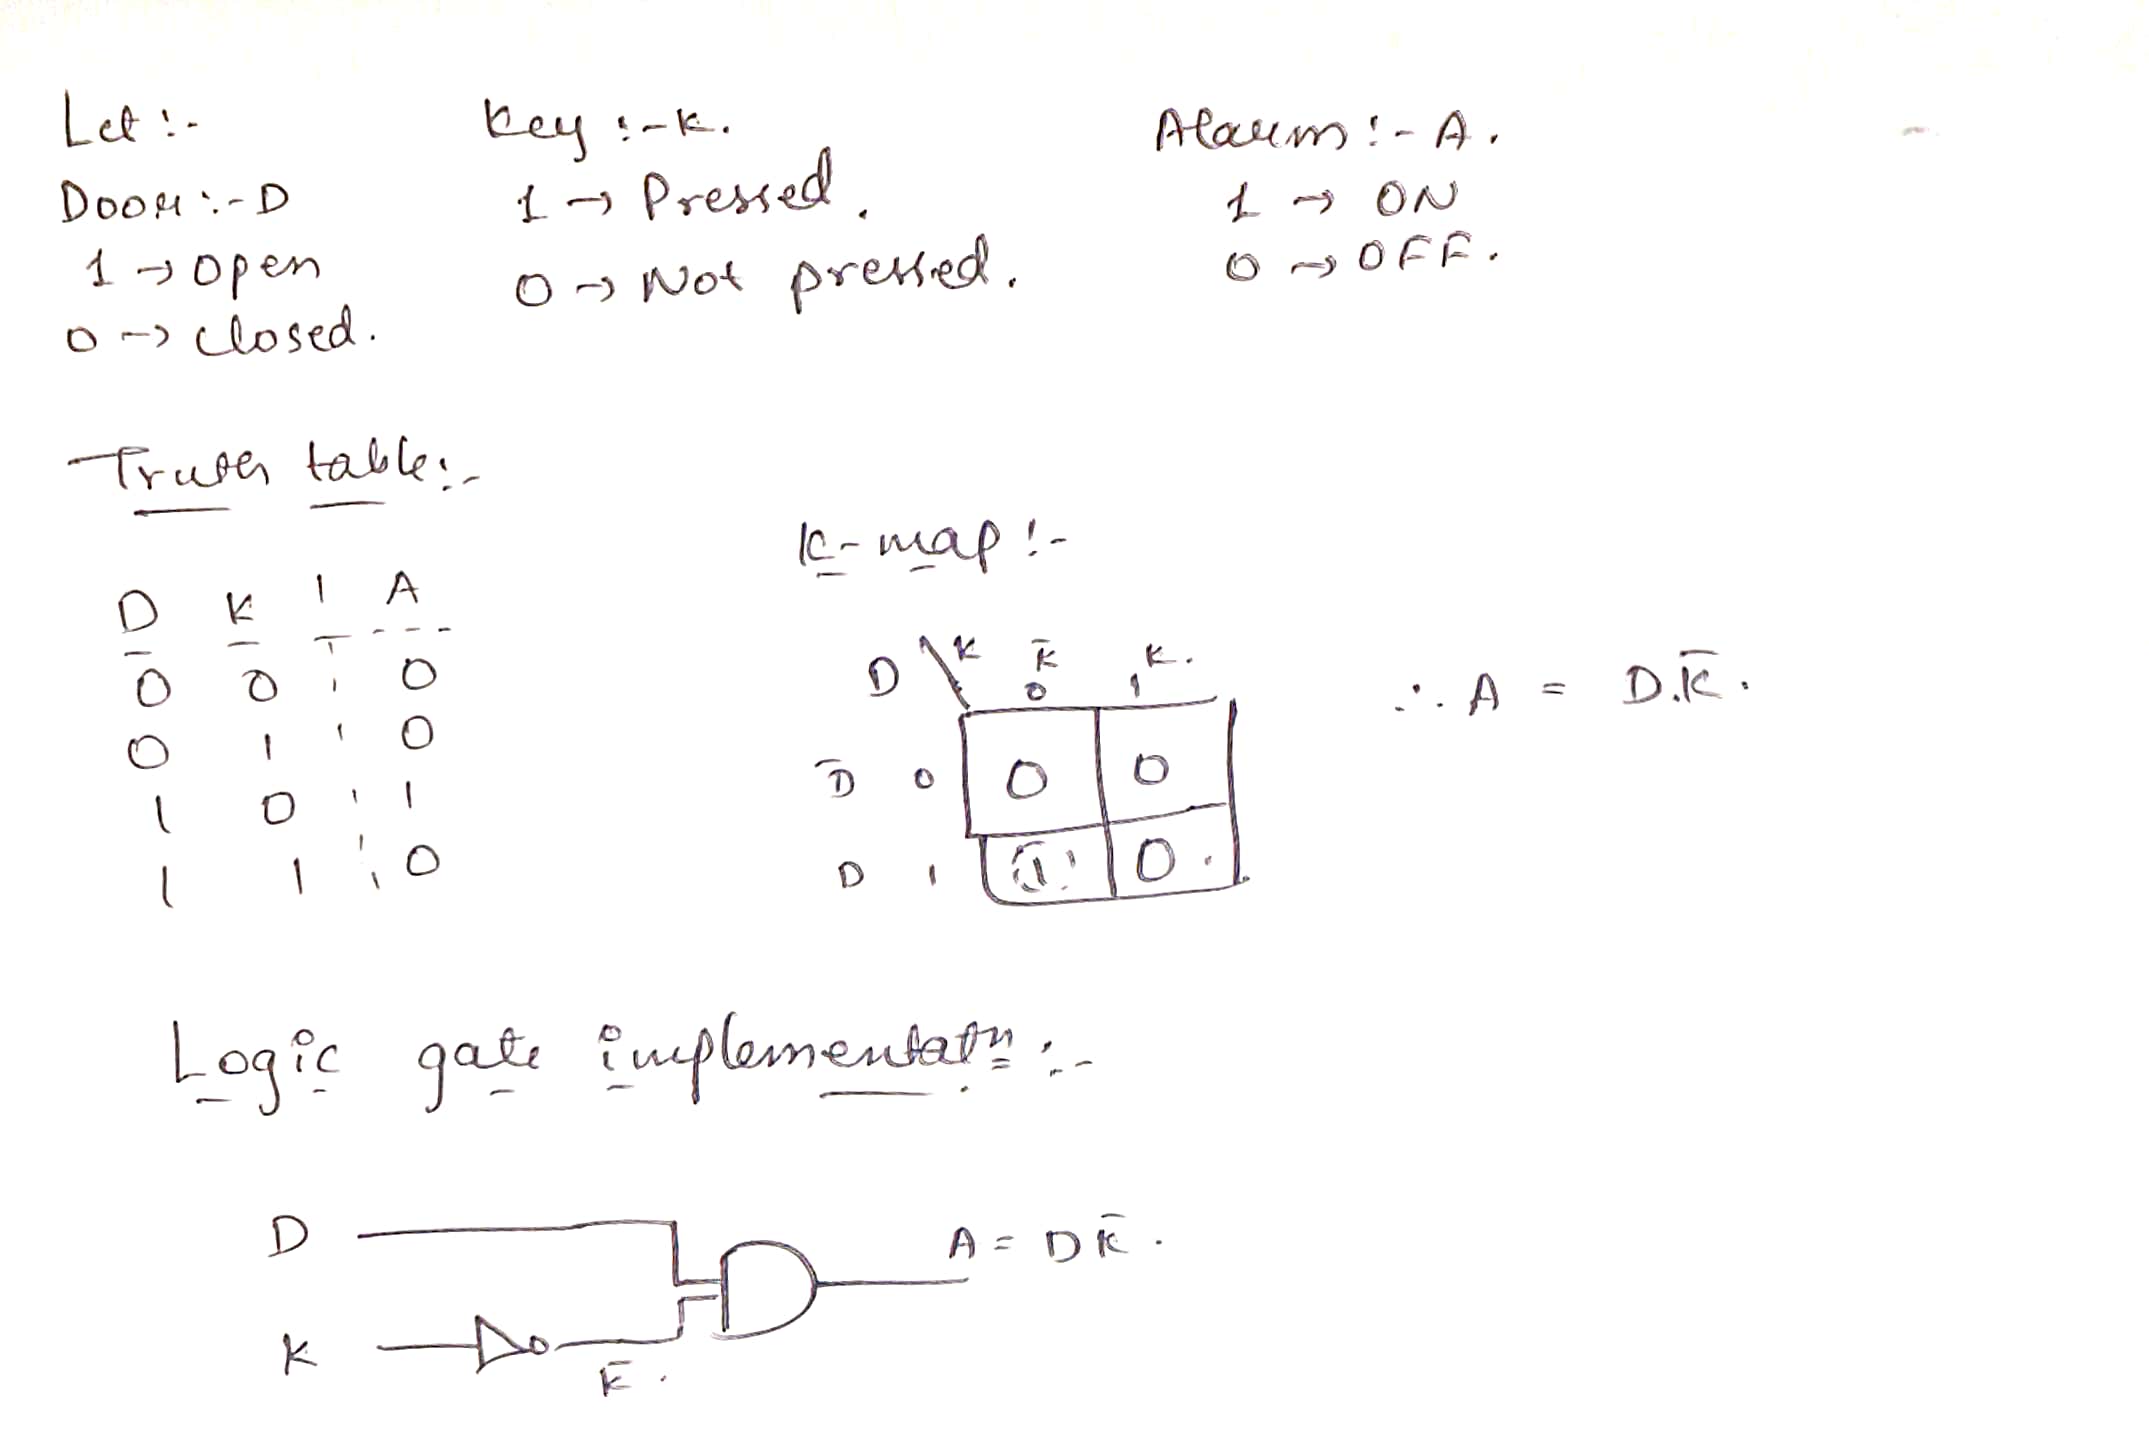 Let :-
Door :- D
1 → Open
0 → closed.
Key :- K.
1 → Pressed.
0 → Not pressed.
Alarm :- A.
1 → ON
0 → OFF.
Truth table :-
D K | A
0 0 | 0
0 1 | 0
1 0 | 1
1 1 | 0
K-map :-
D \ K K̅ K.
0 1
D̅ 0 0 0
D 1 1 0.
∴ A = D.K̅.
Logic gate implementatn :-
D
A = DK̅.
K
K̅.